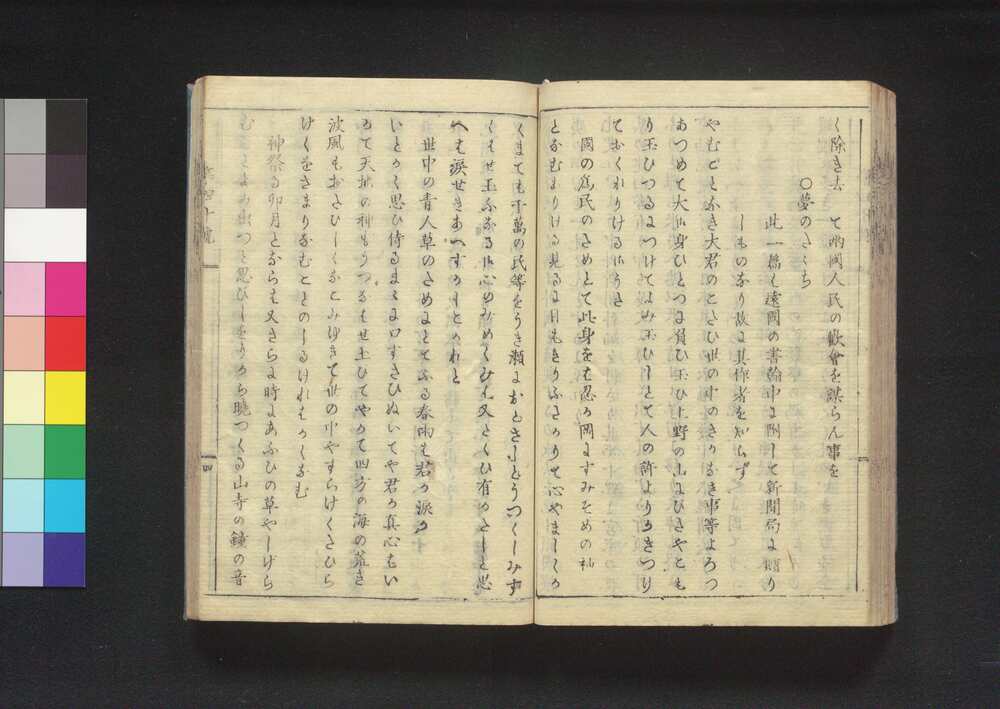 く除き去て両國人民の歓會を謀らん事を
○夢のたゝち
此一編も遠國の書翰中に附して新聞局に贈り
しものなり故に其作者を知らず
やむごとなき大君のこたひ世の中のさわかしき事等よろつ
あつめて大御身ひとつに負ひ玉ひ上野の山にひきやこも
り玉ひつるにつけてよみ玉ひしとて人の許よりかきつり
ておくりける御うた
國の為民のためとて此身をも忍か岡にすみそめの袖
となむありける見るに目もきりふたかりて心やましくか
くまても千萬の民等をうき瀬におとさしとうつくしみす
くはせ玉ふなる御心のみめくみは又とくひ有めやしと思
へは涙せきあへすかしとめれと
世中の青人草のためにとてふる春雨も君か涙か
いとかく思ひ侍るまゝに口すさひぬいてや君か真心もい
もて天地の神もうつなはせ玉ひてやかて四方の海の荒き
波風もおたひしくなこみゆきて世の中やすらけくたひら
けくをさまりなむことのしるけれはかくなむ
神祭る卯月とならは又さらに時にあふひの草やしけら
む
とよみ出つゝ思ひしをりから曉つくる山寺の鐘の音
四